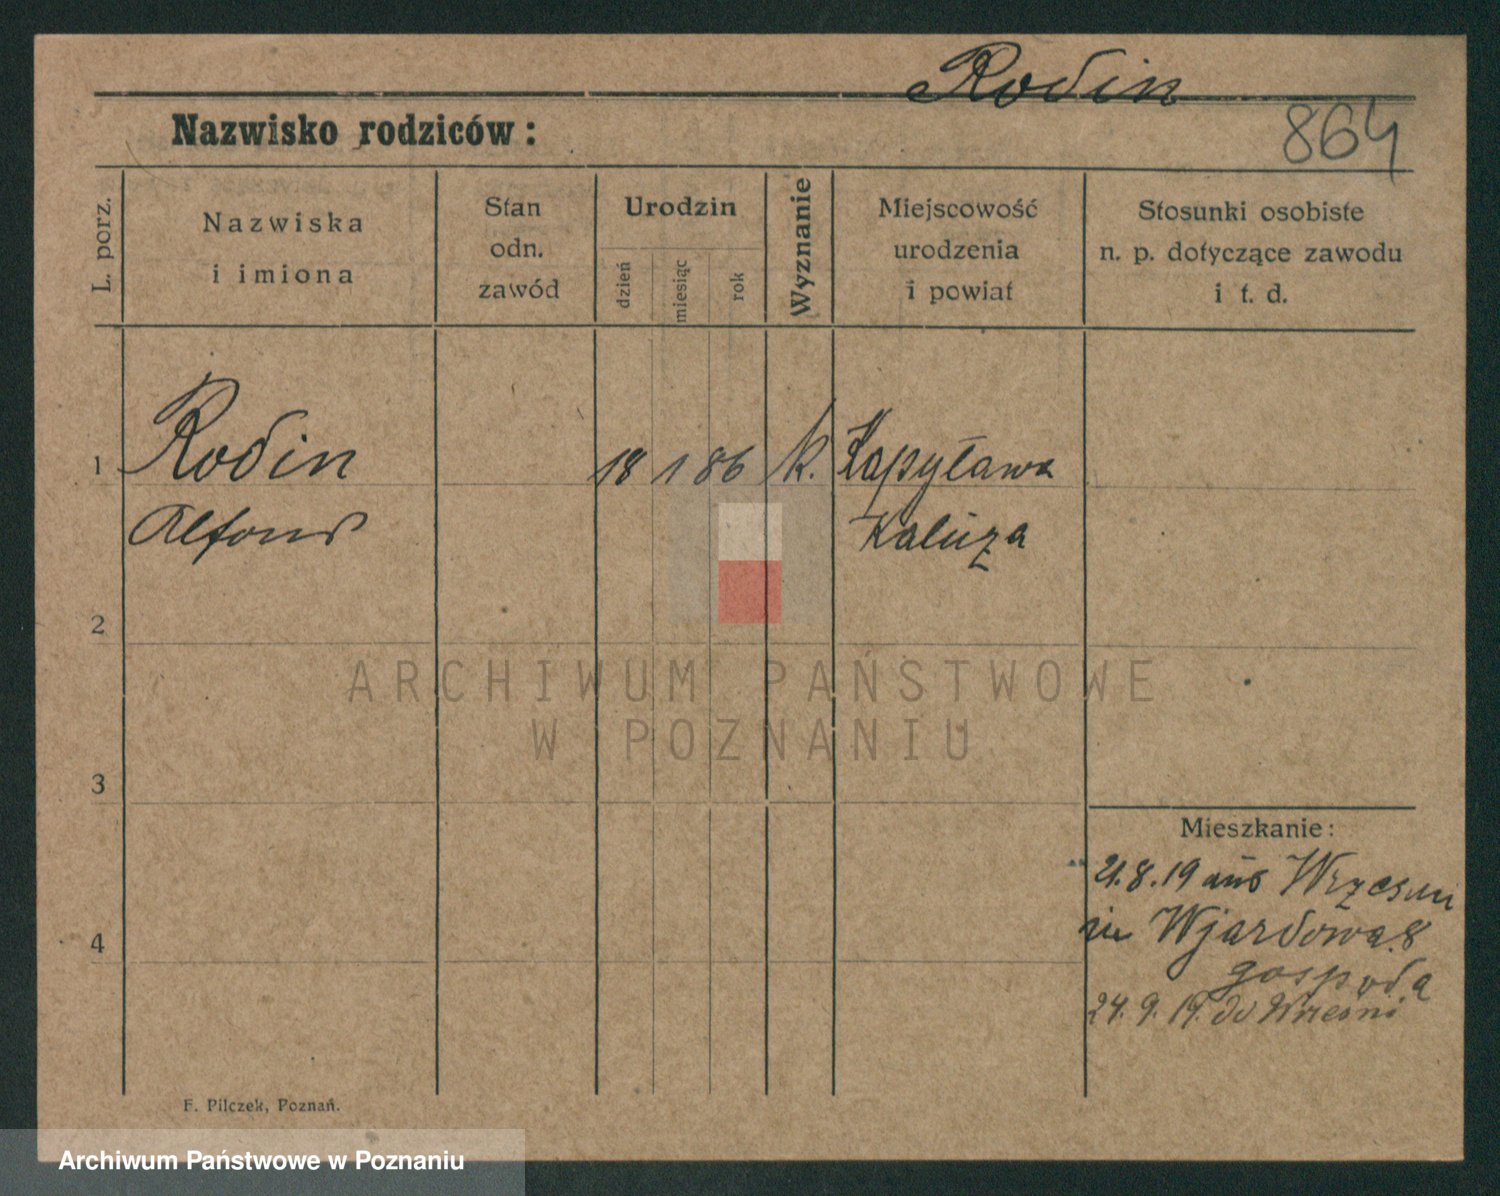 Rodin
864
Nazwisko rodziców:
L. porz.
Nazwiska
i imiona
Stan
odn.
zawód
Urodzin
dzień
miesiąc
rok
Wyznanie
Miejscowość
urodzenia
i powiat
Stosunki osobiste
n. p. dotyczące zawodu
i t. d.
1 Rodin 18 1 86 k. Kapyława
Alfons Kaluza
2
ARCHIWUM PAŃSTWOWE
W POZNANIU
3
Mieszkanie:
21.8.19 aus
4
gospoda
24.9.19. do Wrześni
F. Pilczek, Poznań.
Archiwum Państwowe w Poznaniu